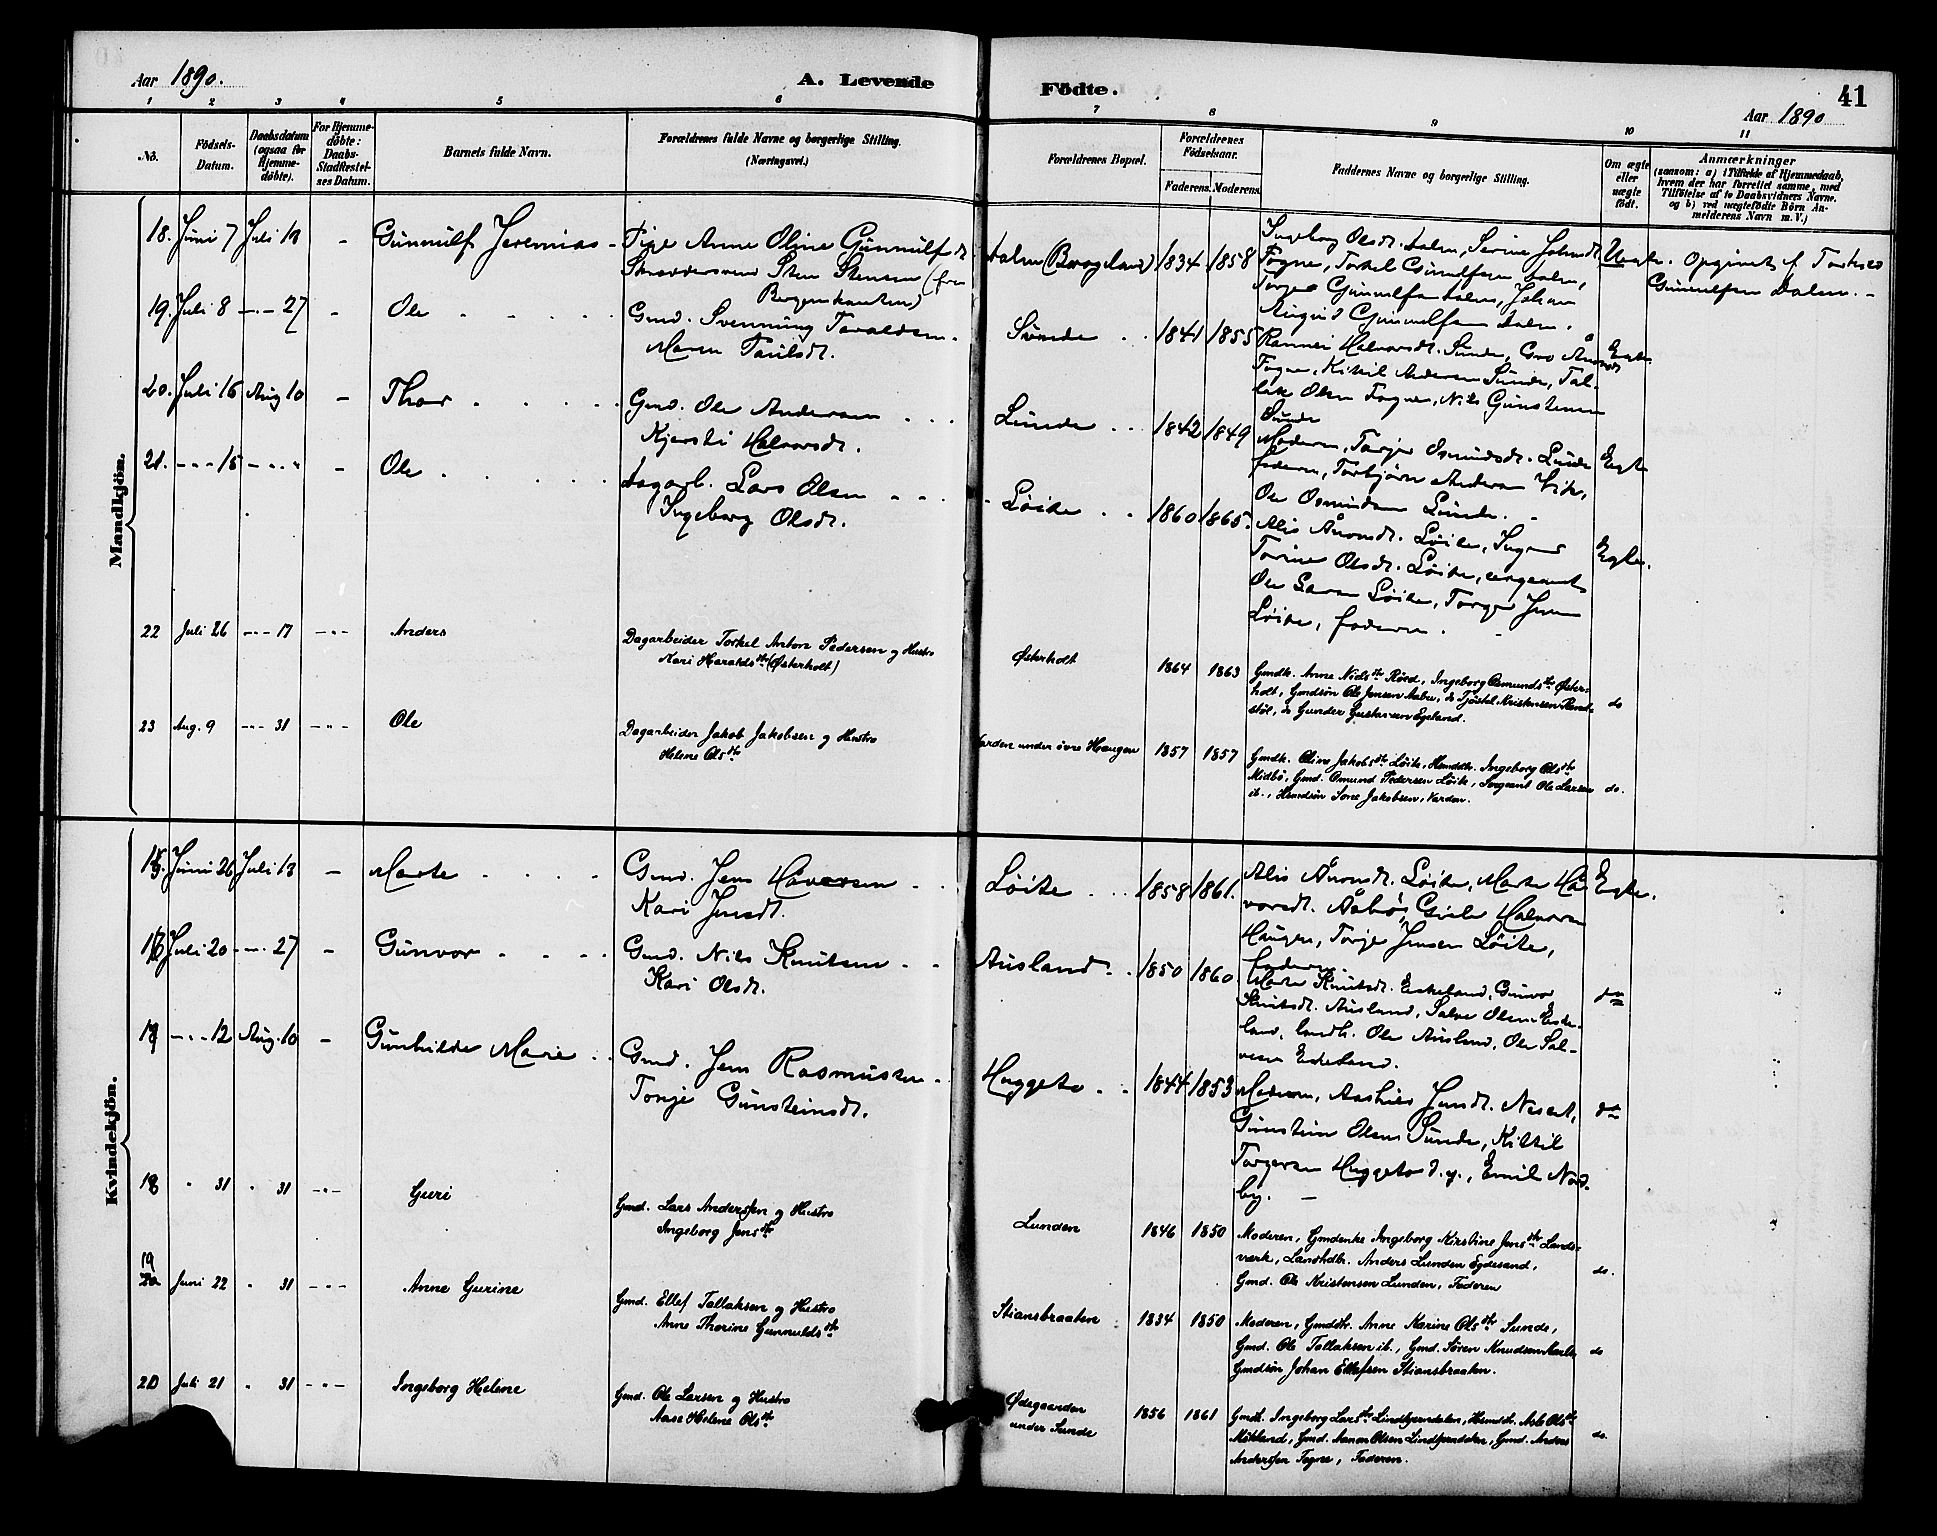 Aar 1890.
A. Levende
Födte.
41
Aar 1890
1 2 3 4 5 6 7 8 9 10 11
No.
Födsels-Datum.
Daabsdatum (ogsaa for Hjemme-døbte).
For Hjemme-døbte: Daabs-Stadfæstel-ses Datum.
Barnets fulde Navn.
Forældrenes fulde Navne og borgerlige Stilling. (Næringsvei.)
Forældrenes Bopæl.
Forældrenes Födselsaar.
Faderens. Moderens.
Faddernes Navne og borgerlige Stilling.
Om ægte eller uægte født.
Anmærkninger
(saasom: a) i Tilfælde af Hjemmedaab, hvem der har forrettet samme, med Tilføielse af to Daabsvidners Navne. og b) ved uægtefødte Börn An-melderens Navn m. V.)
Mandkjön.
18. Juni 7 Juli 13 - Gunnulf Jeremias - Pige Anne Oline Gunnulfsdt.
Skræddersvend Sten Stensen (fra
Bergenskanten)
Dalen (Berogeland) 1834 1858
Ingeborg Olsdt. Dalen, Serine Johnsdt.
Fogne, Torkel Gunulfsen Dalen,
Torger Gunnulfsen Dalen, Johan
Sigurd Gunnulfsen Dalen.
Uægte. Opgivet af Torkel
Gunnulfsen Dalen. -
19. Juli 8 -"- 27 - Ole
Gmd. Svenning Taraldsen.
Maren Paulsdt.
Sunde 1841 1855
Halvorsdt. Sunde, Gro
Fogne, Kittil Andersen Sunde, Tal-
lak Olsen Fogne, Nils Gunstensen
Sunde
Egte.
20. Juli 16 Aug 10 - Thor
Gmd. Ole Andersen
Kjersti Halvorsdt.
Lunde 1842 1849
Moderen, Torjer Osmundsdt. Lunde
faderen, Torbjørn Andersen Vik,
Ole Osmundsen Lunde. -
Egte
21. -"- 15 -"- " - Ole
Dagarb. Lars Olsen
Ingeborg Olsdt.
Løite 1860 1865.
Alis Aaronsdt. Løite, Inger
Torine Olsdt. Løite, sergeant
Ole Larsen Løite, Torger Jensen
Løite, faderen.
Egte.
22 Juli 26 -"- 17 -"- Anders
Dagarbeider Torkel Anton Pedersen og Hustru
Mari Haraldsdtr (Østerholt)
Østerholt 1864 1863
Gmdk. Anne Nilsdtr Røed, Ingeborg Osmundsdtr Øster-
holt, Gmdsøn Ole Jensen Aabu, do Tjøstel Kristensen
støl, do Gunder Gustavsen Egeland.
do
23 Aug. 9 -"- 31 -"- Ole
Dagarbeider Jakob Jakobsen og Hustru
Helene Olsdtr
Varden under övre Haugen 1857 1857
Gmdk. Oline Jakobsdtr Løite, Husmdtr. Ingeborg Olsdtr
Midbö, Gmd. Osmund Pedersen Løite, Sergeant Ole Larsen
ib., Husmdsön Sone Jakobsen, Varden.
do.
Kvindekjön.
15. Juni 26 Juli 13 - Marte
Gmd. Jens Haaversen
Kari Jensdt.
Løite 1858 1861.
Alis Aaronsdt. Løite, Marte Haa-
vorsdt. Aabø, Gjeile Halvorsen
Haugen, Torje Jensen Løite,
faderen.
Egte.
16 Juli 20 -"- 27 - Gunvor
Gmd. Nils Knutsen
Kari Olsdt.
Ausland 1850 1860
Marte Knutsdt. Eskeland, Gunvor
Knutsdt. Ausland, Salve Olsen Eske-
land, Ole Ausland, Ole Sal-
vesen Eskeland.
do
17 -"- 12 Aug. 10 - Gunhilde Marie
Gmd. Jens Rasmussen
Tonje Gunsteinsdt.
Huggeto 1844 1853
Moderen, Aashild Jensdt. Neset,
Gunstein Olsen Sunde, Kittil
Torgersen Huggeto d.y., Emil Nord-
by. -
do
18 " 31 " 31 -"- Guri
Gmd. Lars Anderssen og Hustru
Ingeborg Jensdtr
Lunden 1846 1850
Moderen, Gmdenke Ingeborg Kirstine Jensdtr Lands-
værk, Landhdlr. Anders Lunden Egdesand,
Gmd. Ole Kristensen Lunden, Faderen
do.
19 Juni 22 " 31 -"- Anne Gurine
Gmd. Ellef Tallaksen og Hustru
Anne Thorine Gunnuldsdtr
Stiansbraaten 1834 1850
Moderen, Gmdsdtr. Anne Karine Olsdtr Sunde,
Gmd. Ole Tallaksen ib., Gmd. Sören Knudsen
Gmdsön Johan Ellefsen Stiansbraaten.
do
20 Juli 21 " 31 -"- Ingeborg Helene
Gmd. Ole Larsen og Hustru
Aase Helene Olsdtr
Ødegaarden
under Sunde
1856 1861
Gmdk. Ingeborg Larsdtr Lindtjerndalen, Husmdtr. Asle Olsdtr
Mökland, Gmd. Aanon Olsen Lindtjerndalen, Gmd. Anders
Anderssen Togne, Faderen.
do.